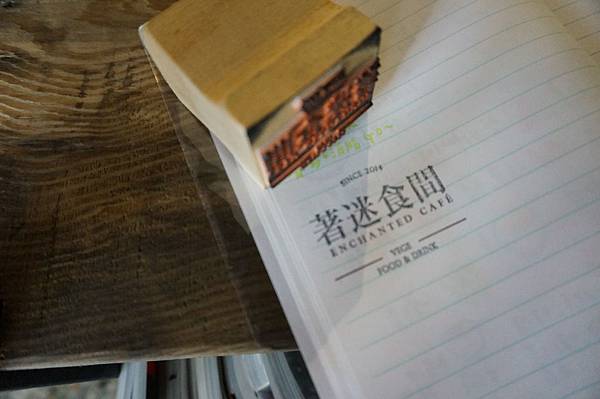 SINCE 2014
著迷食間
ENCHANTED CAFÉ
VEGE
FOOD & DRINK